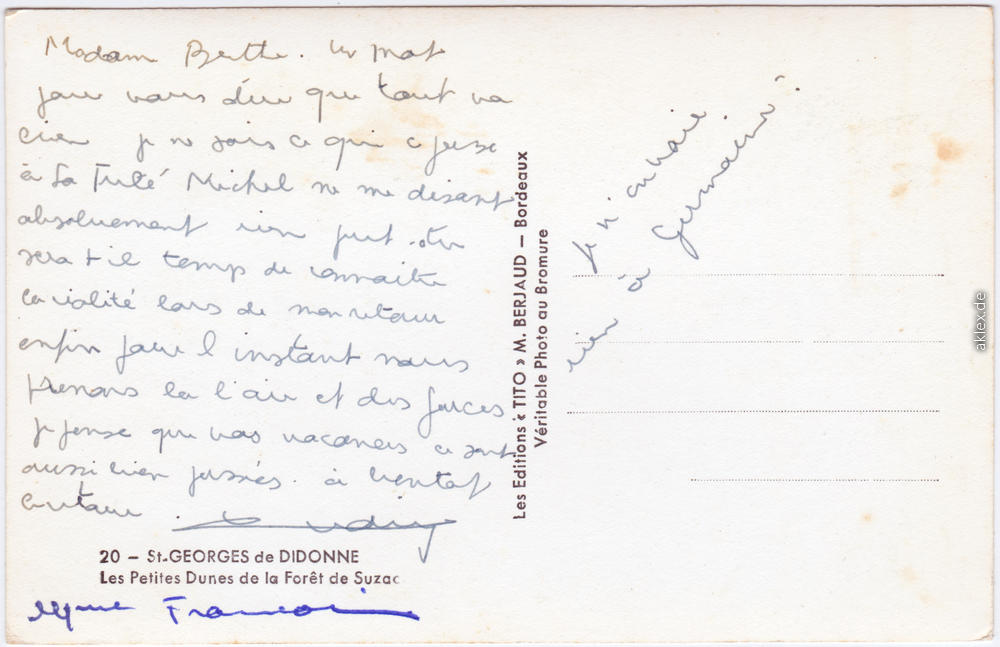 Madam Berthe. un mot
pour vous dire que tout va
bien je ne sais ce qui c passe
à La Michel ne me disant
absolument rien peut être
sera t il temps de connaitre
la réalité lors de mon retour
enfin pour l instant nous
prenons la l'air et des forces
Je pense que vos vacances ce sont
aussi bien passées. à bientot
20 – St-GEORGES de DIDONNE
Les Petites Dunes de la Forêt de Suzac
Francois
Les Editions « TITO » M. BERJAUD – Bordeaux
Véritable Photo au Bromure
Je n'envoie
rien à Germaine.
aklex.de